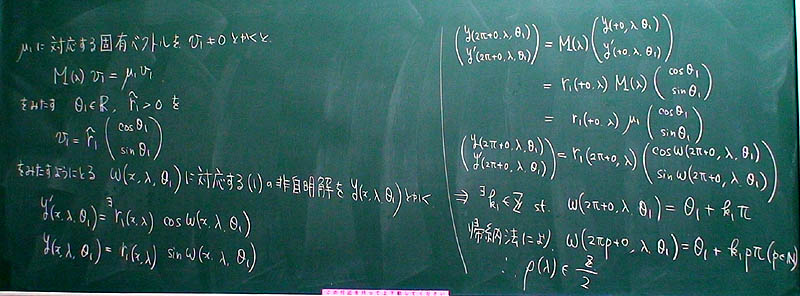 μ₁に対応する固有ベクトルを v₁ ≠ 0 とかくと
M(λ) v₁ = μ₁ v₁
をみたす θ₁ ∈ R, r̂₁ > 0 を
v₁ = r̂₁ (cosθ₁ sinθ₁)
をみたすようにとる ω(x, λ, θ₁)に対応する(1)の非自明解を y(x, λ, θ₁)とかく
y'(x, λ, θ₁) = ∃r₁(x, λ) cos ω(x, λ, θ₁)
y(x, λ, θ₁) = r₁(x, λ) sin ω(x, λ, θ₁)
(y(2π+0, λ, θ₁) y'(2π+0, λ, θ₁)) = M(λ) (y(+0, λ, θ₁) y'(+0, λ, θ₁))
= r₁(+0, λ) M(λ) (cosθ₁ sinθ₁)
= r₁(+0, λ) μ₁ (cosθ₁ sinθ₁)
(y(2π+0, λ, θ₁) y'(2π+0, λ, θ₁)) = r₁(2π+0, λ) (cos ω(2π+0, λ, θ₁) sin ω(2π+0, λ, θ₁))
⇒ ∃k₁ ∈ Z st. ω(2π+0, λ, θ₁) = θ₁ + k₁π
帰納法により ω(2πp+0, λ, θ₁) = θ₁ + k₁pπ (p∈N)
∴ ρ(λ) ∈ Z/2